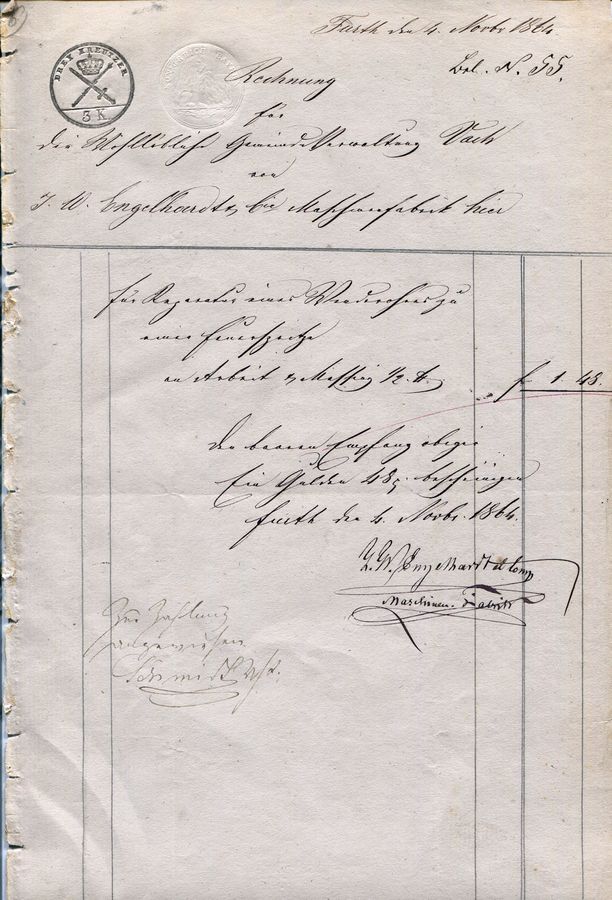 Fürth den 4. Novbr. 1864
DREY KREUZER
3 K
Bel. N. 55.
Rechnung
für
die Wohllöbliche Gemeinde Verwaltung Vach
von
J. W. Engelhardt & Cie Maschinenfabrik hier
für Reparatur eines Wenderohres zu
einer Feuerspritze
an Arbeit & Messing ½ ℔.
f 1. 48.
Den baaren Empfang obiger
Ein Gulden 48 bescheinigen
Fürth den 4. Novbr. 1864.
J. W. Engelhardt et Comp
Maschinen-Fabrik
Zur Zahlung
angewiesen
Schmidt